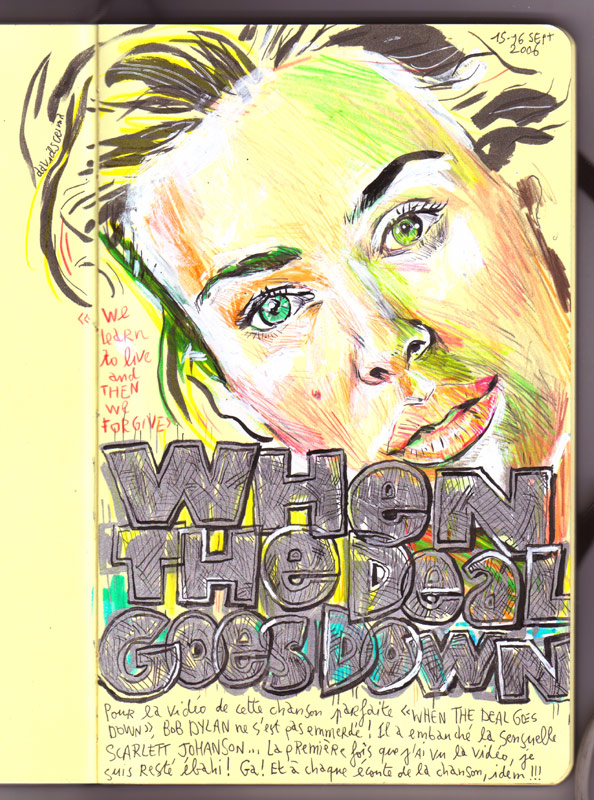 15-16 SEPT
2006
« We
learn
to live
and
THEN
we
FORGIVE »
WHeN
THe DeaL
GOes DOWN
Pour la vidéo de cette chanson parfaite «WHEN THE DEAL GOES
DOWN», BOB DYLAN ne s'est pas emmerdé! Il a embauché la sensuelle
SCARLETT JOHANSON... La première fois que j'ai vu la vidéo, je
suis resté ébahi! Ga! Et à chaque écoute de la chanson, idem!!!